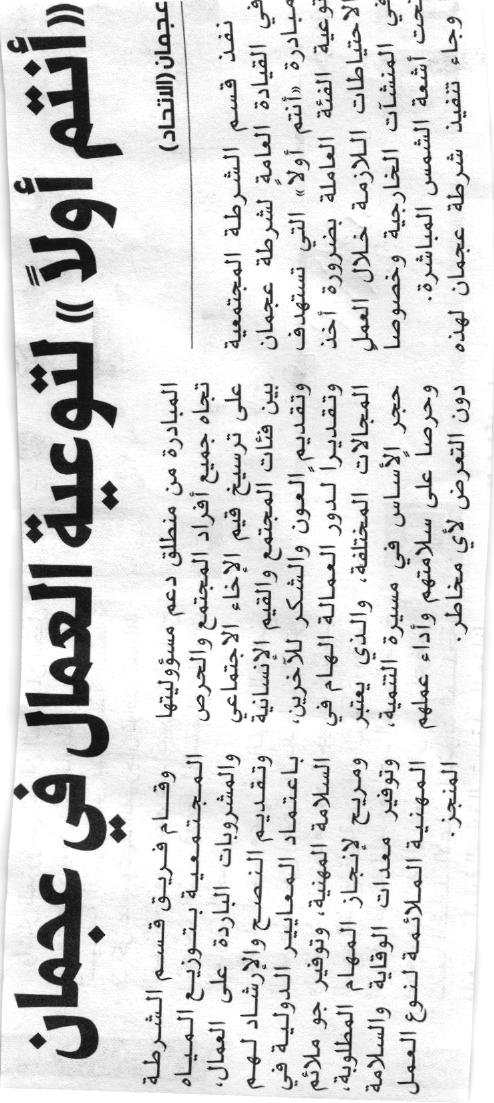 «أنتم أولاً» لتوعية العمال في عجمان
عجمان (الاتحاد)
نفذ قسم الشرطة المجتمعية
في القيادة العامة لشرطة عجمان
مبادرة «أنتم أولاً» التي تستهدف
توعية الفئة العاملة بضرورة أخذ
الاحتياطات اللازمة خلال العمل
في المنشآت الخارجية وخصوصا
تحت أشعة الشمس المباشرة.
وجاء تنفيذ شرطة عجمان لهذه
المبادرة من منطلق دعم مسؤوليتها
تجاه جميع أفراد المجتمع والحرص
على ترسيخ قيم الإخاء الاجتماعي
بين فئات المجتمع والقيم الإنسانية
وتقديم العون والشكر للآخرين،
وتقديراً لدور العمالة الهام في
المجالات المختلفة، والذي يعتبر
حجر الأساس في مسيرة التنمية،
وحرصاً على سلامتهم وأداء عملهم
دون التعرض لأي مخاطر.
وقام فريق قسم الشرطة
المجتمعية بتوزيع المياه
والمشروبات الباردة على العمال،
وتقديم النصح والإرشاد لهم
باعتماد المعايير الدولية في
السلامة المهنية، وتوفير جو ملائم
ومريح لإنجاز المهام المطلوبة،
وتوفير معدات الوقاية والسلامة
المهنية الملائمة لنوع العمل
المنجز.